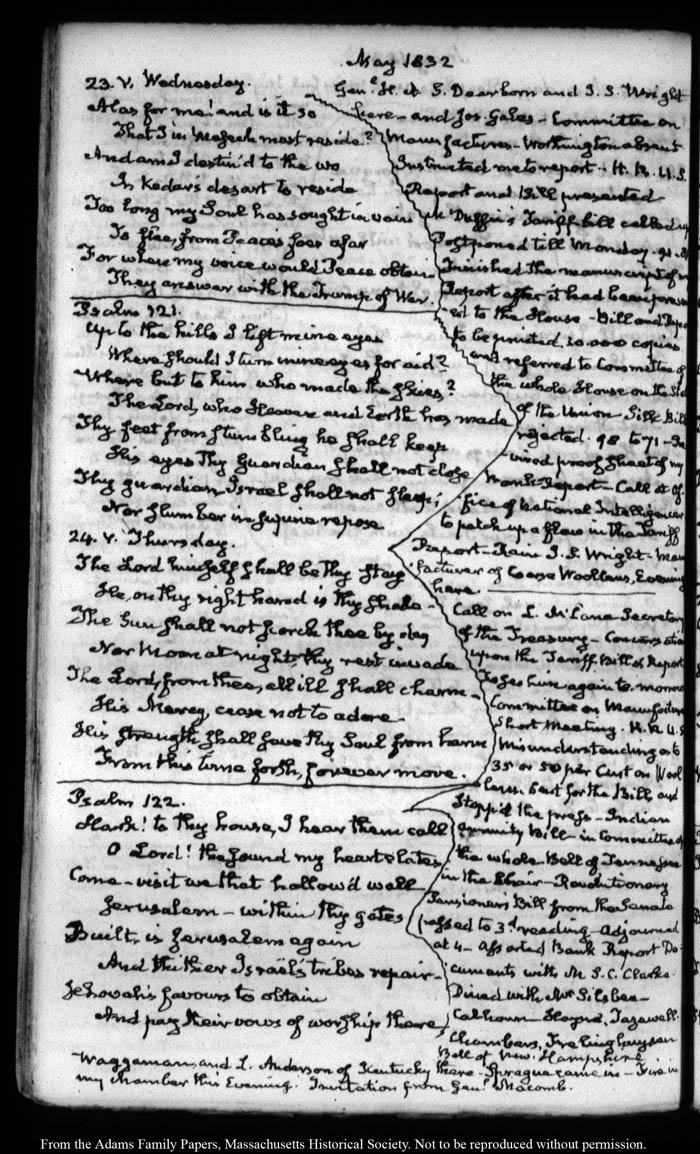 May 1832
23. V. Wednesday.
Alas for me! and is it so
That I in Mesech must reside?
And am I destin'd to the wo
In Kedar's desart to reside
Too long my Soul has sought in vain
To flee, from Peace's foes afar
For when my voice would Peace obtain
They answer with the Trump of War.
Psalm 121.
Up to the hills I lift mine eyes
Where should I turn mine eyes for aid?
Where but to him who made the skies?
The Lord, who Heaven and Earth has made
Thy feet from stumbling he shall keep
His eyes Thy Guardian shall not close
Thy guardian, Israel shall not sleep;
Nor slumber in supine repose
24. V. Thursday.
The Lord himself shall be thy stay
He, on thy right hand is thy shade -
The Sun shall not scorch thee by day
Nor Moon at night, thy rest invade
The Lord, from thee, all ill shall charm -
His Mercy, cease not to adore
His strength shall save thy Soul from harm
From this time forth, forever more.
Psalm 122.
Hark! to thy house, I hear them call
O Lord! the sound my heart elates
Come - visit we that hallow'd wall
Jerusalem - within thy gates
Built, is Jerusalem again
And thither Israel's tribes repair -
Jehovah's favours to obtain
And pay their vows of worship there
Genl. H. A. S. Dearborn and I. S. Wright
here - and Jos. Gales - Committee on
Manufactures - Worthington absent
Instructed me to report - H. R. U.S.
Report and Bill presented
McDuffie's Tariff bill called up
Postponed till Monday. 91. 81
Finished the manuscript of my
Report after it had been present
ed to the House - Bill and Report
to be printed. 10,000 copies
and referred to Committee of
the whole House on the State
of the Union - Silk Bill
rejected. 98 to 71 - Re
vised proof Sheet of my
Bank Report - Call at of
fice of National Intelligencer
to patch up a flaw in the Tariff
Report - Rain I. S. Wright - Manu
facturer of Coarse Woollens, Evening
here.
Call on L. McLane Secretary
of the Treasury - Conversation
upon the Tariff Bill & Report
To see him again to-morrow
Committee on Manufactures
Short Meeting. H. R. U.S
Misunderstanding as to
35 or 50 per Cent on Wool
lens. Sent for the Bill, and
Stopp'd the press - Indian
Annuity Bill - in Committee of
the whole - Bell of Tennessee
in the Chair - Revolutionary
Pensioners Bill from the Senate
passed to 3d. reading - Adjourned
at 4 - Assorted Bank Report Do
cuments with M. S. C. Clarke.
Dined with Mr Silsbee -
Calhoun - Hayne, Tazewell
Chambers, Frelinghuysen
Bell of New Hampshire
Waggaman, and L. Anderson of Kentucky there - Sprague came in - Fire in
my Chamber this Evening. Invitation from Genl. Macomb.
From the Adams Family Papers, Massachusetts Historical Society. Not to be reproduced without permission.